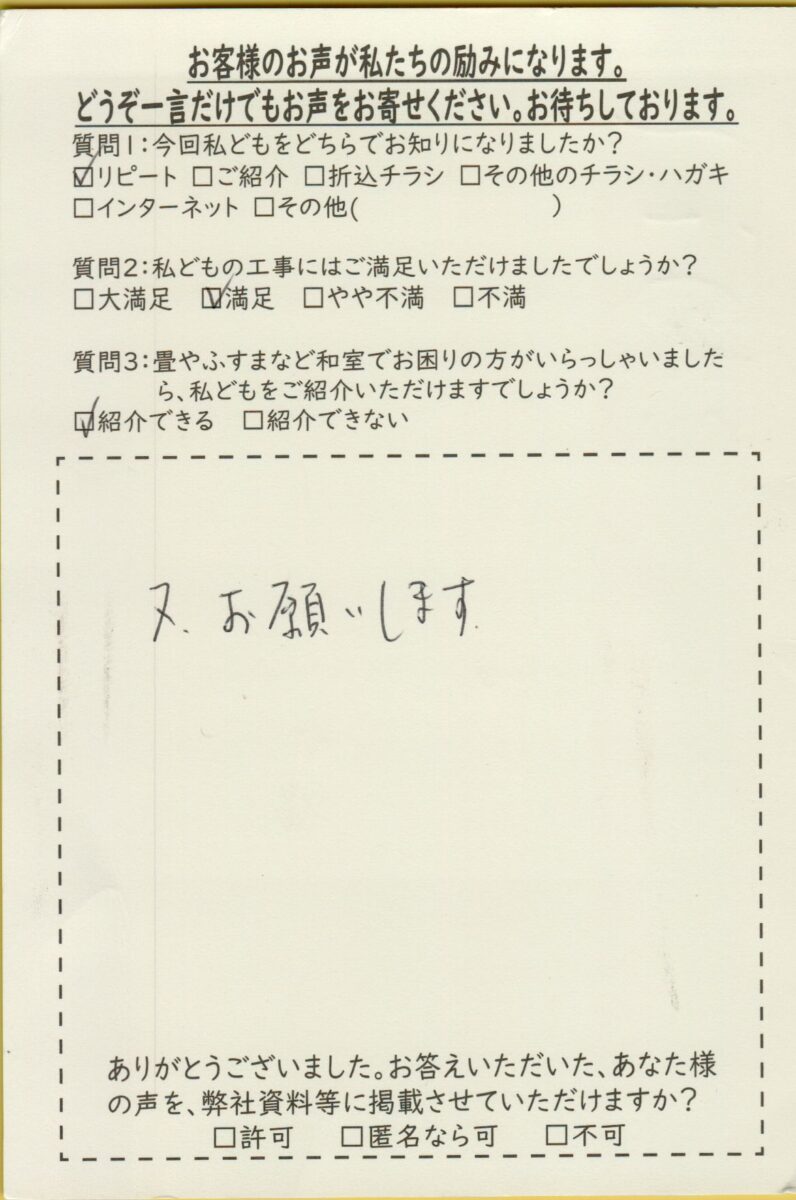 お客様のお声が私たちの励みになります。
どうぞ一言だけでもお声をお寄せください。お待ちしております。
質問1:今回私どもをどちらでお知りになりましたか?
☑リピート □ご紹介 □折込チラシ □その他のチラシ・ハガキ
□インターネット □その他( )
質問2:私どもの工事にはご満足いただけましたでしょうか?
□大満足 ☑満足 □やや不満 □不満
質問3:畳やふすまなど和室でお困りの方がいらっしゃいました
ら、私どもをご紹介いただけますでしょうか?
☑紹介できる □紹介できない
又、お願いします.
ありがとうございました。お答えいただいた、あなた様
の声を、弊社資料等に掲載させていただけますか?
□許可 □匿名なら可 □不可